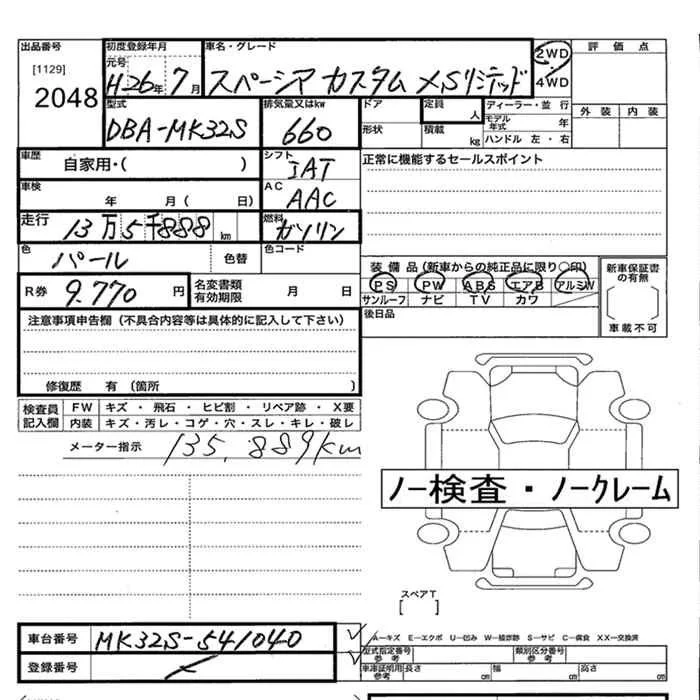 出品番号 初度登録年月 車名・グレード 2WD 評価点
[1129] 元号
2048 H26年 7月 スペーシア カスタム XSリミテッド 4WD
型式 排気量又はkw ドア 定員 人 ディーラー・並行 外装 内装
DBA-MK32S 660 形状 積載 kg モデル年式 年
ハンドル 左・右
車歴 自家用・( ) シフト IAT 正常に機能するセールスポイント
車検 年 月( 日) AC AAC
走行 13万5千888km 燃料 ガソリン
色 パール 色替 色コード
装備品(新車からの純正品に限り〇印) 新車保証書の有無
R券 9.770円 名変書類有効期限 月 日 PS PW ABS エアB アルミW
サンルーフ ナビ TV カワ
注意事項申告欄(不具合内容等は具体的に記入して下さい) 後日品 車載不可
修復歴 有(箇所 )
検査員記入欄 FW キズ・飛石・ヒビ割・リペア跡・X要
内装 キズ・汚レ・コゲ・穴・スレ・キレ・破レ
メーター指示 135,889km
ノー検査・ノークレーム
スペアT
[ ]
車台番号 MK32S-541040 A-キズ E-エクボ U-凹み W-補修跡 S-サビ C-腐食 XX-交換済
型式指定番号 参考 類別区分番号 参考
登録番号 車庫証明用 参考 長さ cm 幅 cm 高さ cm